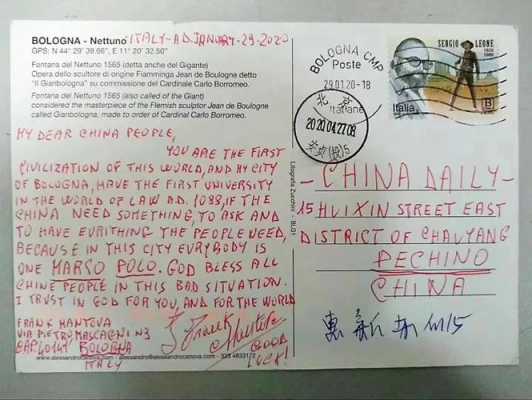 BOLOGNA - Nettuno
ITALY-AD. JANUARY-29-2020
GPS: N 44° 29' 39.66", E 11° 20' 32.50"
Fontana del Nettuno 1565 (detta anche del Gigante)
Opera dello scultore di origine Fiamminga Jean de Boulogne detto
"Il Gianbologna" su commissione del Cardinale Carlo Borromeo.
Fontana del Nettuno 1565 (also called of the Giant)
considered the masterpiece of the Flemish sculptor Jean de Boulogne
called Gianbologna, made to order of Cardinal Carlo Borromeo.
MY DEAR CHINA PEOPLE,
YOU ARE THE FIRST
CIVILIZATION OF THIS WORLD, AND MY CITY
OF BOLOGNA, HAVE THE FIRST UNIVERSITY
IN THE WORLD OF LAW AD. 1088, IF THE
CHINA NEED SOMETHING, TO ASK AND
TO HAVE EVRITHING THE PEOPLE NEED,
BECAUSE IN THIS CITY EVRYBODY IS
ONE MARCO POLO. GOD BLESS ALL
CHINE PEOPLE IN THIS BAD SITUATION.
I TRUST IN GOD FOR YOU, AND FOR THE WORLD
FRANK MANTOVA
VIA PIETRO MASCAGNI N3
CAP 40141 BOLOGNA
ITALY
Frank
GOOD
LUCK!
BOLOGNA CMP
Poste
29.01.20-18
Italiane
北京
2020.04.27.09
5
SERGIO LEONE
Italia
B
CHINA DAILY-
15 HUIXIN STREET EAST
DISTRICT OF CHAUYANG
PECHINO
CHINA
惠新东街15